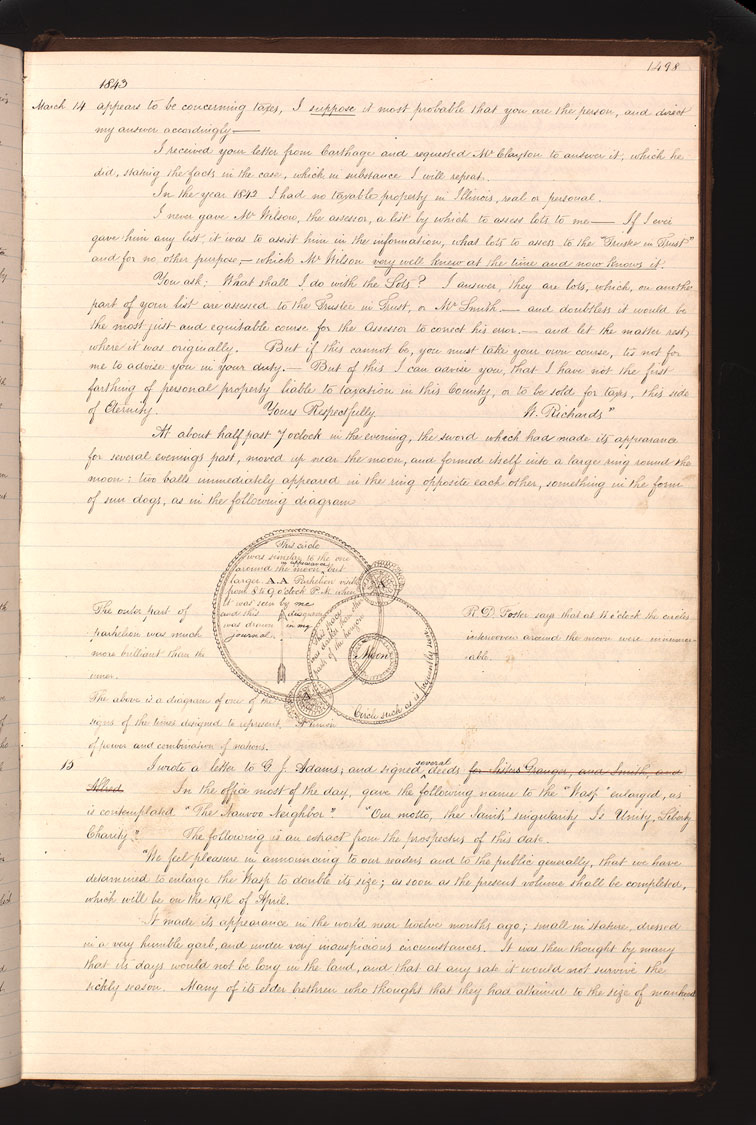 1498
1843
March 14 appears to be concerning taxes, I suppose it most probable that you are the person, and direct
my answer accordingly —
I received your letter from Carthage and requested Mr Clayton to answer it, which he
did, stating the facts in the case, which in substance I will repeat.
In the year 1842 I had no taxable property in Illinois, real or personal.
I never gave Mr Wilson, the assessor, a list by which to assess lots to me — If I ever
gave him any list, it was to assist him in the information, what lots to assess to the "Trustee in Trust"
and for no other purpose, — which Mr Wilson very well knew at the time and now knows it.
You ask: What shall I do with the Lots? I answer, they are lots, which, on another
part of your list are assessed to the Trustee in Trust, or Mr Smith, — and doubtless it would be
the most just and equitable course for the Assessor to correct his error, — and let the matter rest,
where it was originally. But if this cannot be, you must take your own course, tis not for
me to advise you in your duty. — But of this I can advise you, that I have not the first
farthing of personal property liable to taxation in this County, or to be sold for taxes, this side
of Eternity. Yours Respectfully W. Richards"
At about half past 7 oclock in the evening, the sword which had made its appearance
for several evenings past, moved up near the moon, and formed itself into a large ring round the
moon: two balls immediately appeared in the ring opposite each other, something in the form
of sun dogs, as in the following diagram
This circle
was similar to the one
in appearance
around the moon, but
larger. A.A Parhelion visible
from 8 to 9 o'clock P.M. when
it was seen by me
and this diagram
was drawn in my
journal.
A
This space
was darker than the
rest of the horizon
Moon
A
Circle such as is frequently seen
The outer part of
parhelion was much
more brilliant than the
inner.
R. D. Foster says that at 11 o'clock the circles
interwoven around the moon were innumer-
able.
The above is a diagram of one of the
signs of the times designed to represent a union
of power and combination of nations.
15 I wrote a letter to G. J. Adams; and signed several deeds for Sisters Granger, and Smith, and
Allred In the office most of the day, gave the following name to the "Wasp" enlarged, as
is contemplated "The Nauvoo Neighbor". "Our motto, the Saints' singularity Is Unity, Liberty,
Charity." The following is an extract from the prospectus of this date.
"We feel pleasure in announcing to our readers and to the public generally, that we have
determined to enlarge the Wasp to double its size; as soon as the present volume shall be completed,
which will be on the 19th of April.
It made its appearance in the world near twelve months ago; small in stature, dressed
in a very humble garb, and under very inauspicious circumstances. It was then thought by many
that its days would not be long in the land, and that at any rate it would not survive the
sickly season. Many of its elder brethren who thought that they had attained to the size of manhood